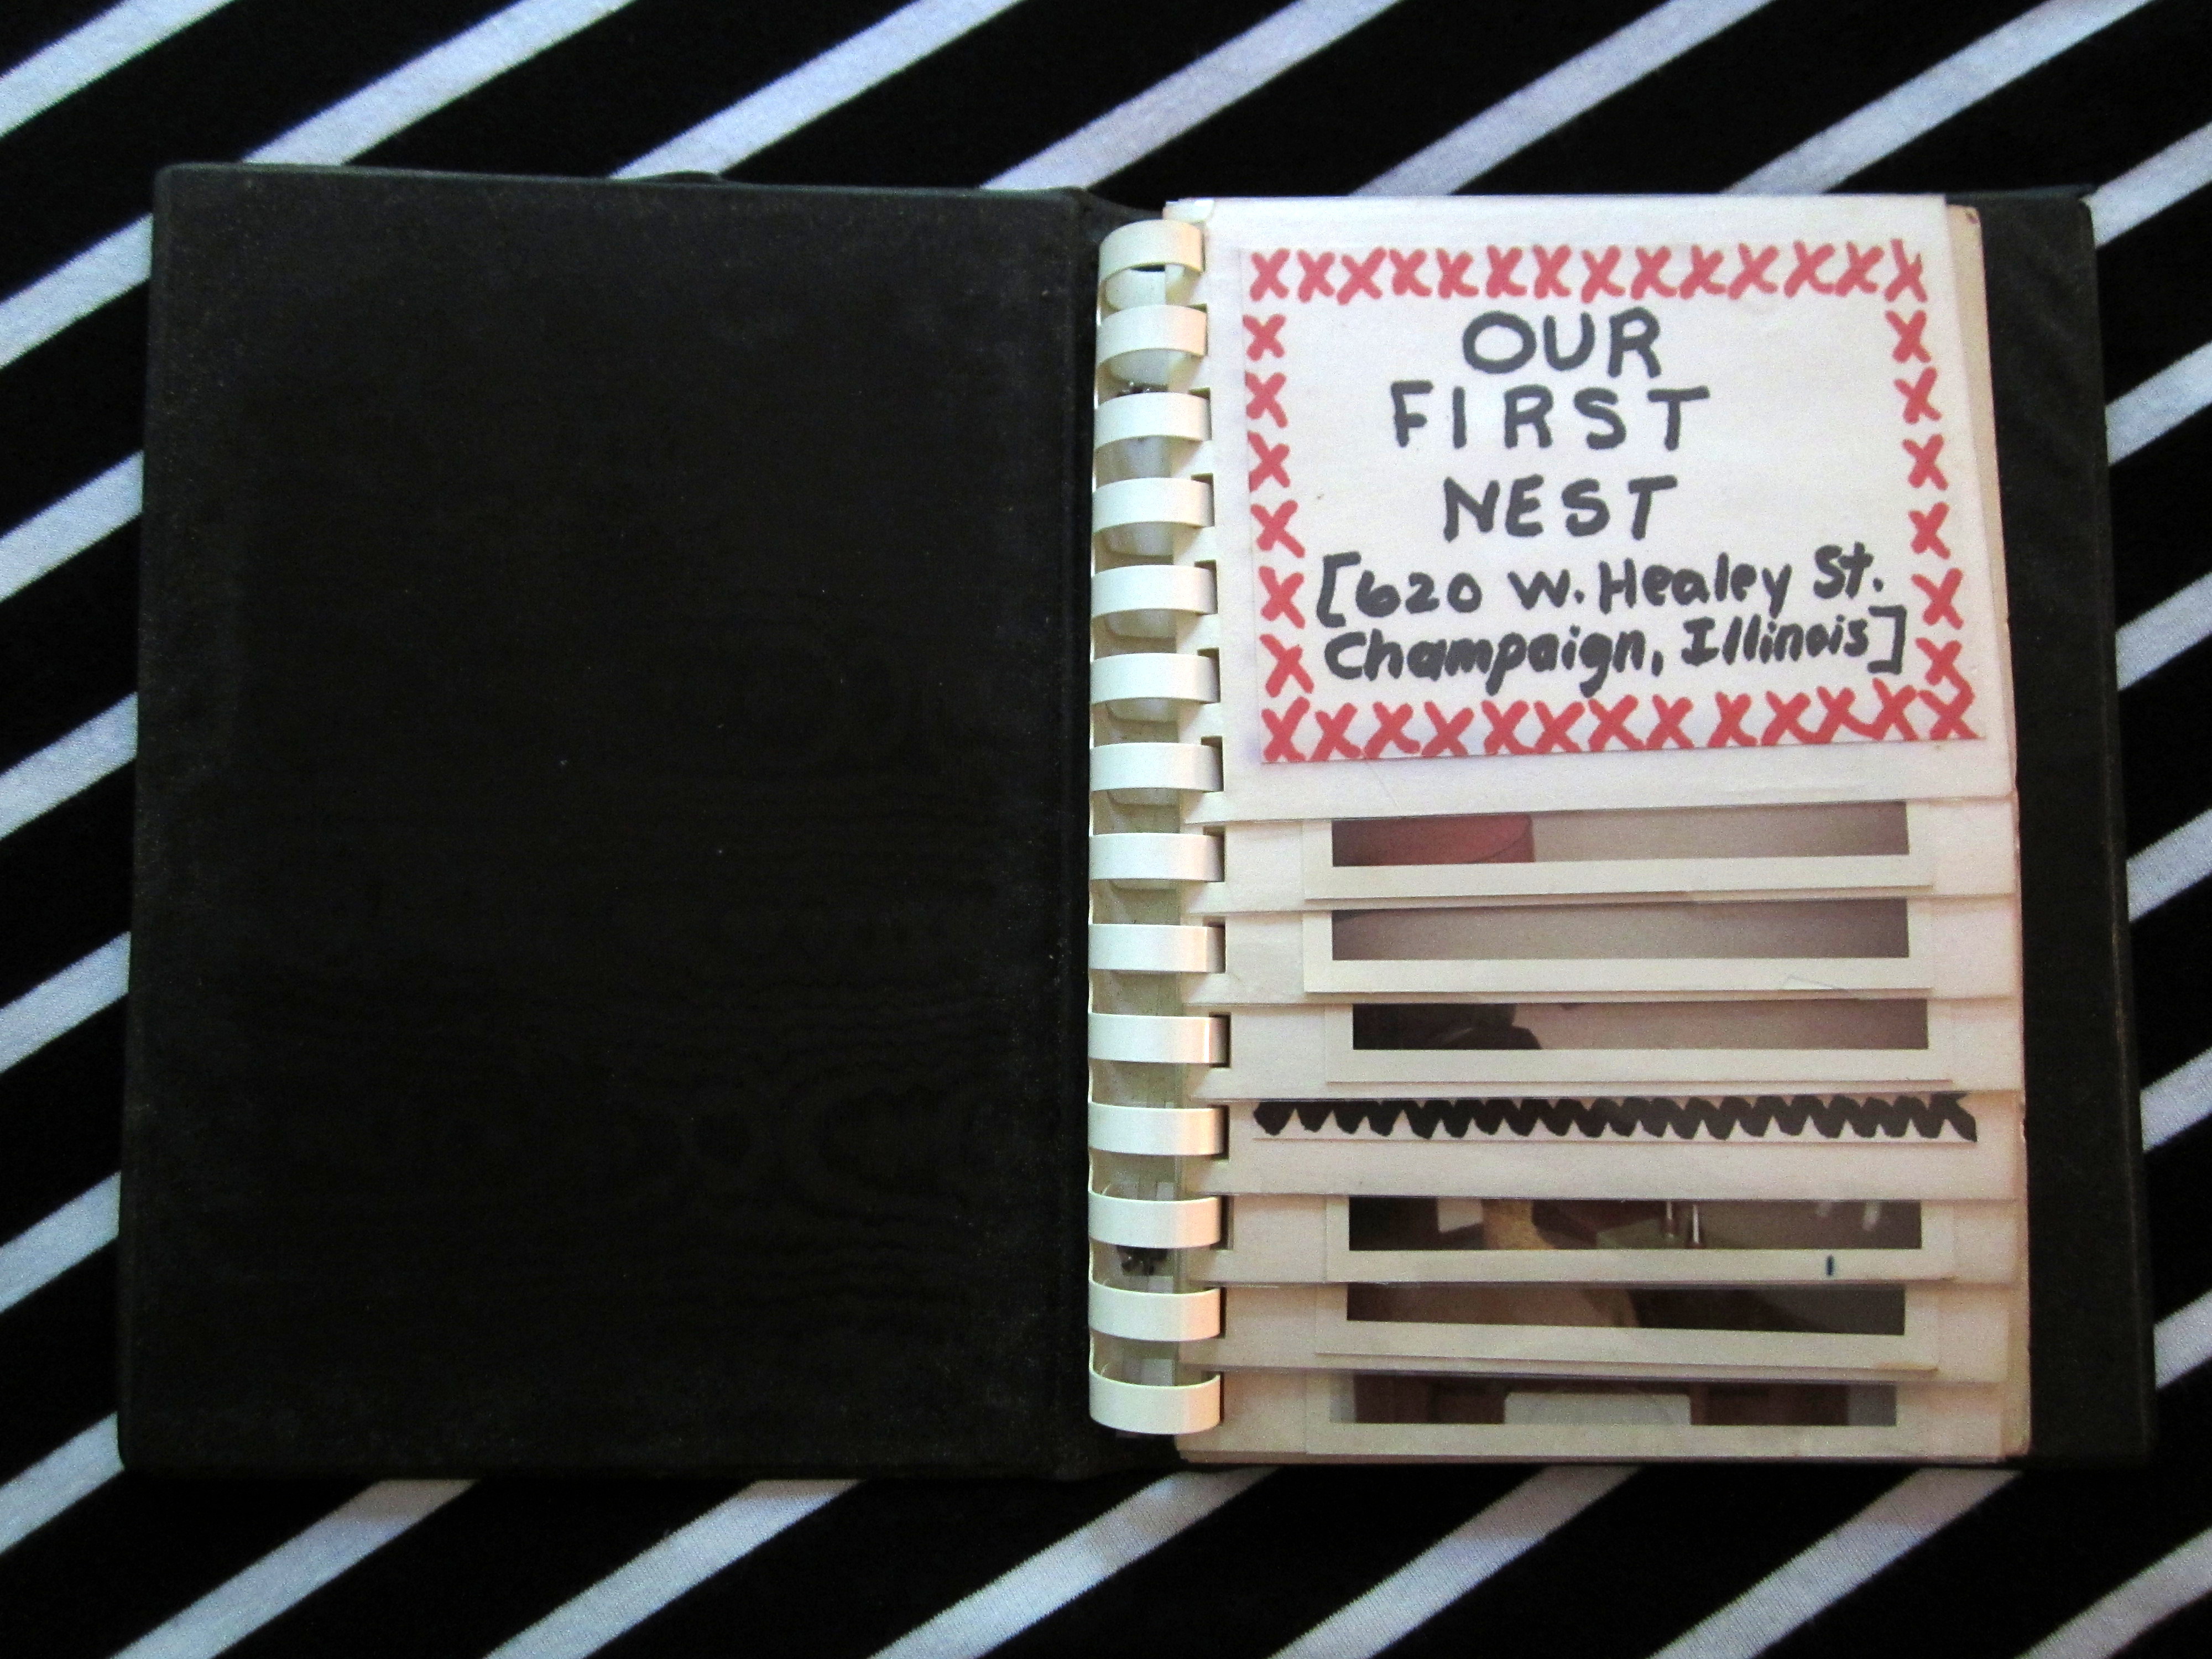 OUR
FIRST
NEST
[620 W. Healey St.
Champaign, Illinois]